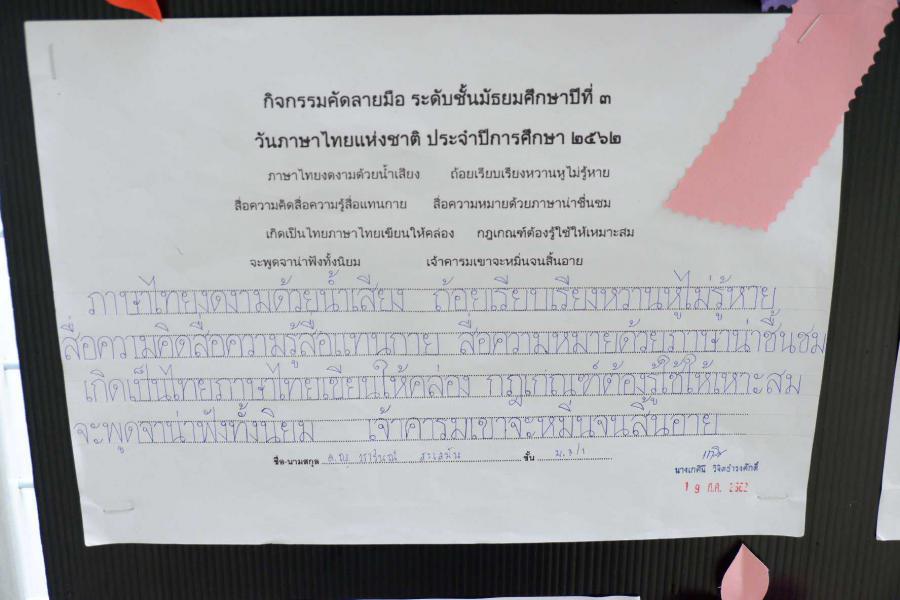 กิจกรรมคัดลายมือ ระดับชั้นมัธยมศึกษาปีที่ ๓
วันภาษาไทยแห่งชาติ ประจำปีการศึกษา ๒๕๖๒
ภาษาไทยงดงามด้วยน้ำเสียง ถ้อยเรียบเรียงหวานหูไม่รู้หาย
สื่อความคิดสื่อความรู้สื่อแทนกาย สื่อความหมายด้วยภาษาน่าชื่นชม
เกิดเป็นไทยภาษาไทยเขียนให้คล่อง กฎเกณฑ์ต้องรู้ใช้ให้เหมาะสม
จะพูดจาน่าฟังทั้งนิยม เจ้าคารมเขาจะหมิ่นจนสิ้นอาย
ภาษาไทยงดงามด้วยน้ำเสียง ถ้อยเรียบเรียงหวานหูไม่รู้หาย
สื่อความคิดสื่อความรู้สื่อแทนกาย สื่อความหมายด้วยภาษาน่าชื่นชม
เกิดเป็นไทยภาษาไทยเขียนให้คล่อง กฎเกณฑ์ต้องรู้ใช้ให้เหาะสม
จะพูดจาน่าฟังทั้งนิยม เจ้าคารมเขาจะหมิ่นจนสิ้นอาย
ชื่อ-นามสกุล ด.ญ. ชั้น ม.3/1
นางเกศินี วิจิตธำรงศักดิ์
19 ก.ค. 2562